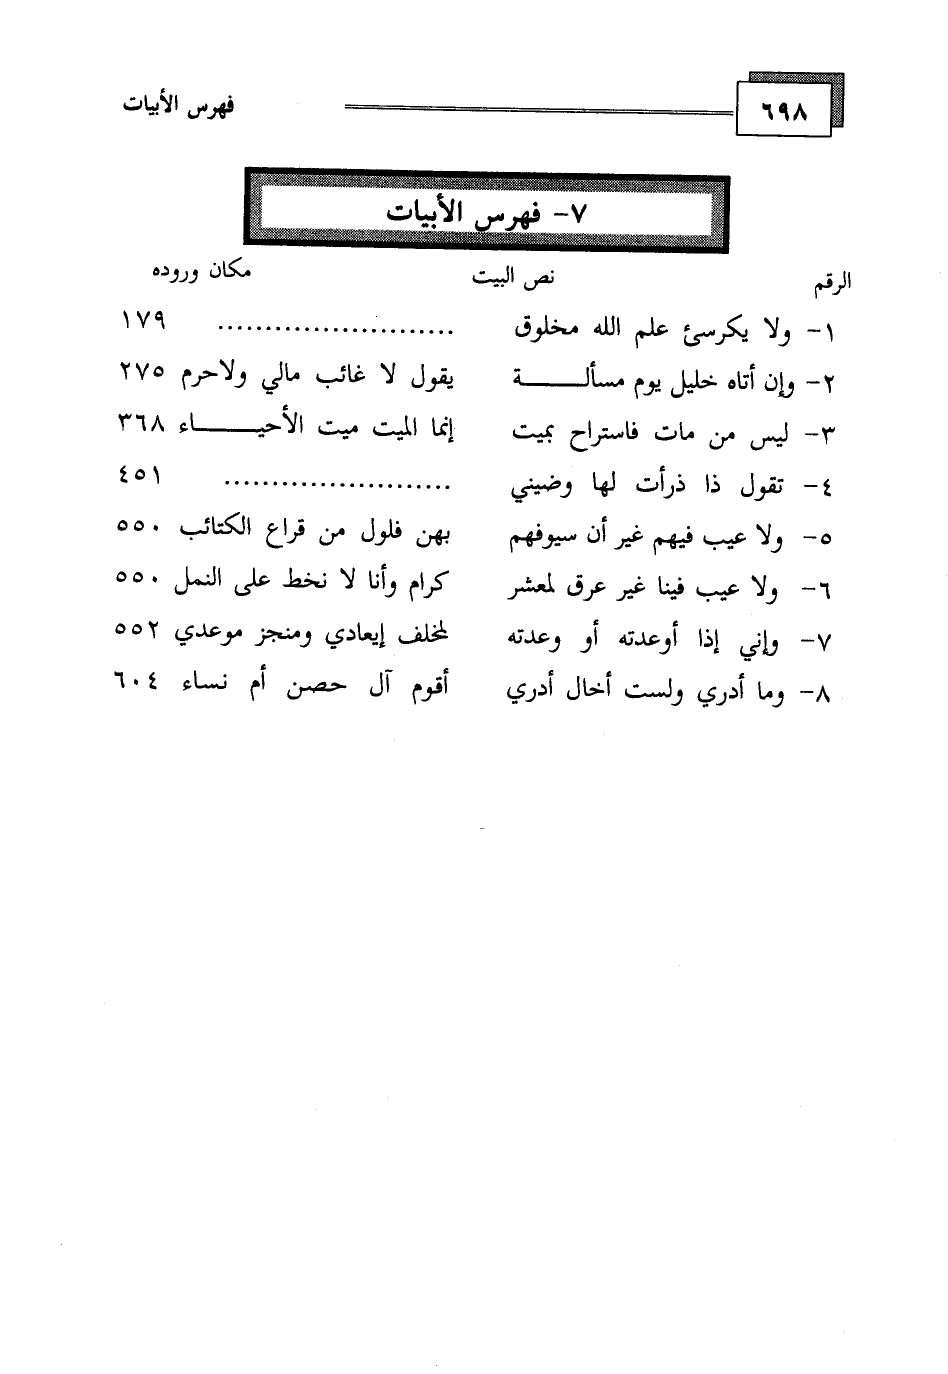 ٦٩٨ فهرس الأبيات
٧- فهرس الأبيات
الرقم نص البيت مكان وروده
١- ولا يكرسئ علم الله مخلوق ........................ ١٧٩
٢- وإن أتاه خليل يوم مسألــــــة يقول لا غائب مالي ولاحرم ٢٧٥
٣- ليس من مات فاستراح بميت إنما الميت ميت الأحيــــــاء ٣٦٨
٤- تقول ذا ذرأت لها وضيني ........................ ٤٥١
٥- ولا عيب فيهم غير أن سيوفهم بهن فلول من قراع الكتائب ٥٥٠
٦- ولا عيب فينا غير عرق لمعشر كرام وأنا لا نخط على النمل ٥٥٠
٧- وإني إذا أوعدته أو وعدته لمخلف إيعادي ومنجز موعدي ٥٥٢
٨- وما أدري ولست أخال أدري أقوم آل حصن أم نساء ٦٠٤